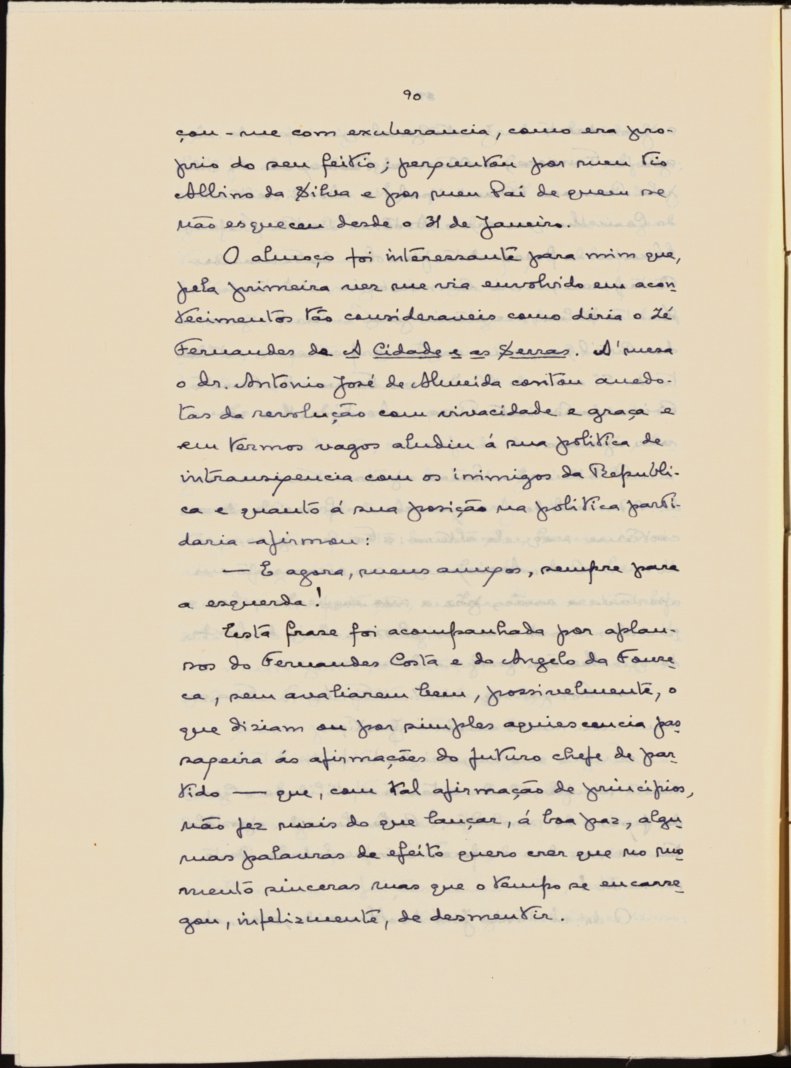 90
çou-me com exuberancia, como era pro-
prio do seu feitio; perguntou por meu tio
Albino da Silva e por meu Pai de quem se
não esqueceu desde o 31 de Janeiro.
O almoço foi interessante para mim que,
pela primeira vez me via envolvido em acon
tecimentos tão consideraveis como diria o Zé
Fernandes da A Cidade e as Serras. A' mesa
o dr. Antonio José de Almeida contou anedo-
tas da revolução com vivacidade e graça e
em termos vagos aludiu á sua politica de
intransigencia com os inimigos da Republi-
ca e quanto á sua posição na politica parti-
daria afirmou:
— E agora, meus amigos, sempre para
a esquerda!
Esta frase foi acompanhada por aplau-
sos do Fernandes Costa e do Angelo da Fonse
ca, sem avaliarem bem, possivelmente, o
que diziam ou por simples aquiescencia pas
sageira ás afirmações do futuro chefe de par
tido — que, com tal afirmação de principios,
não fez mais do que lançar, á boa paz, algu
mas palavras de efeito quero crer que no mo
mento sinceras mas que o tempo se encarre
gou, infelizmente, de desmentir.